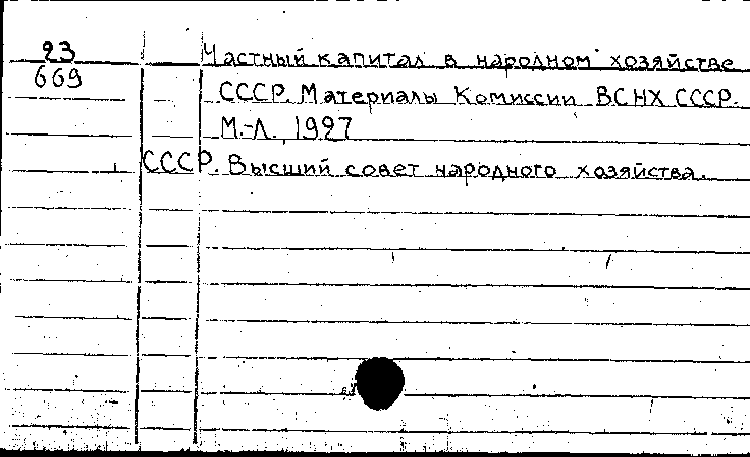 23 Частный капитал в народном хозяйстве
669 СССР. Материалы Комиссии ВСНХ СССР.
М.-Л., 1927
СССР. Высший совет народного хозяйства.